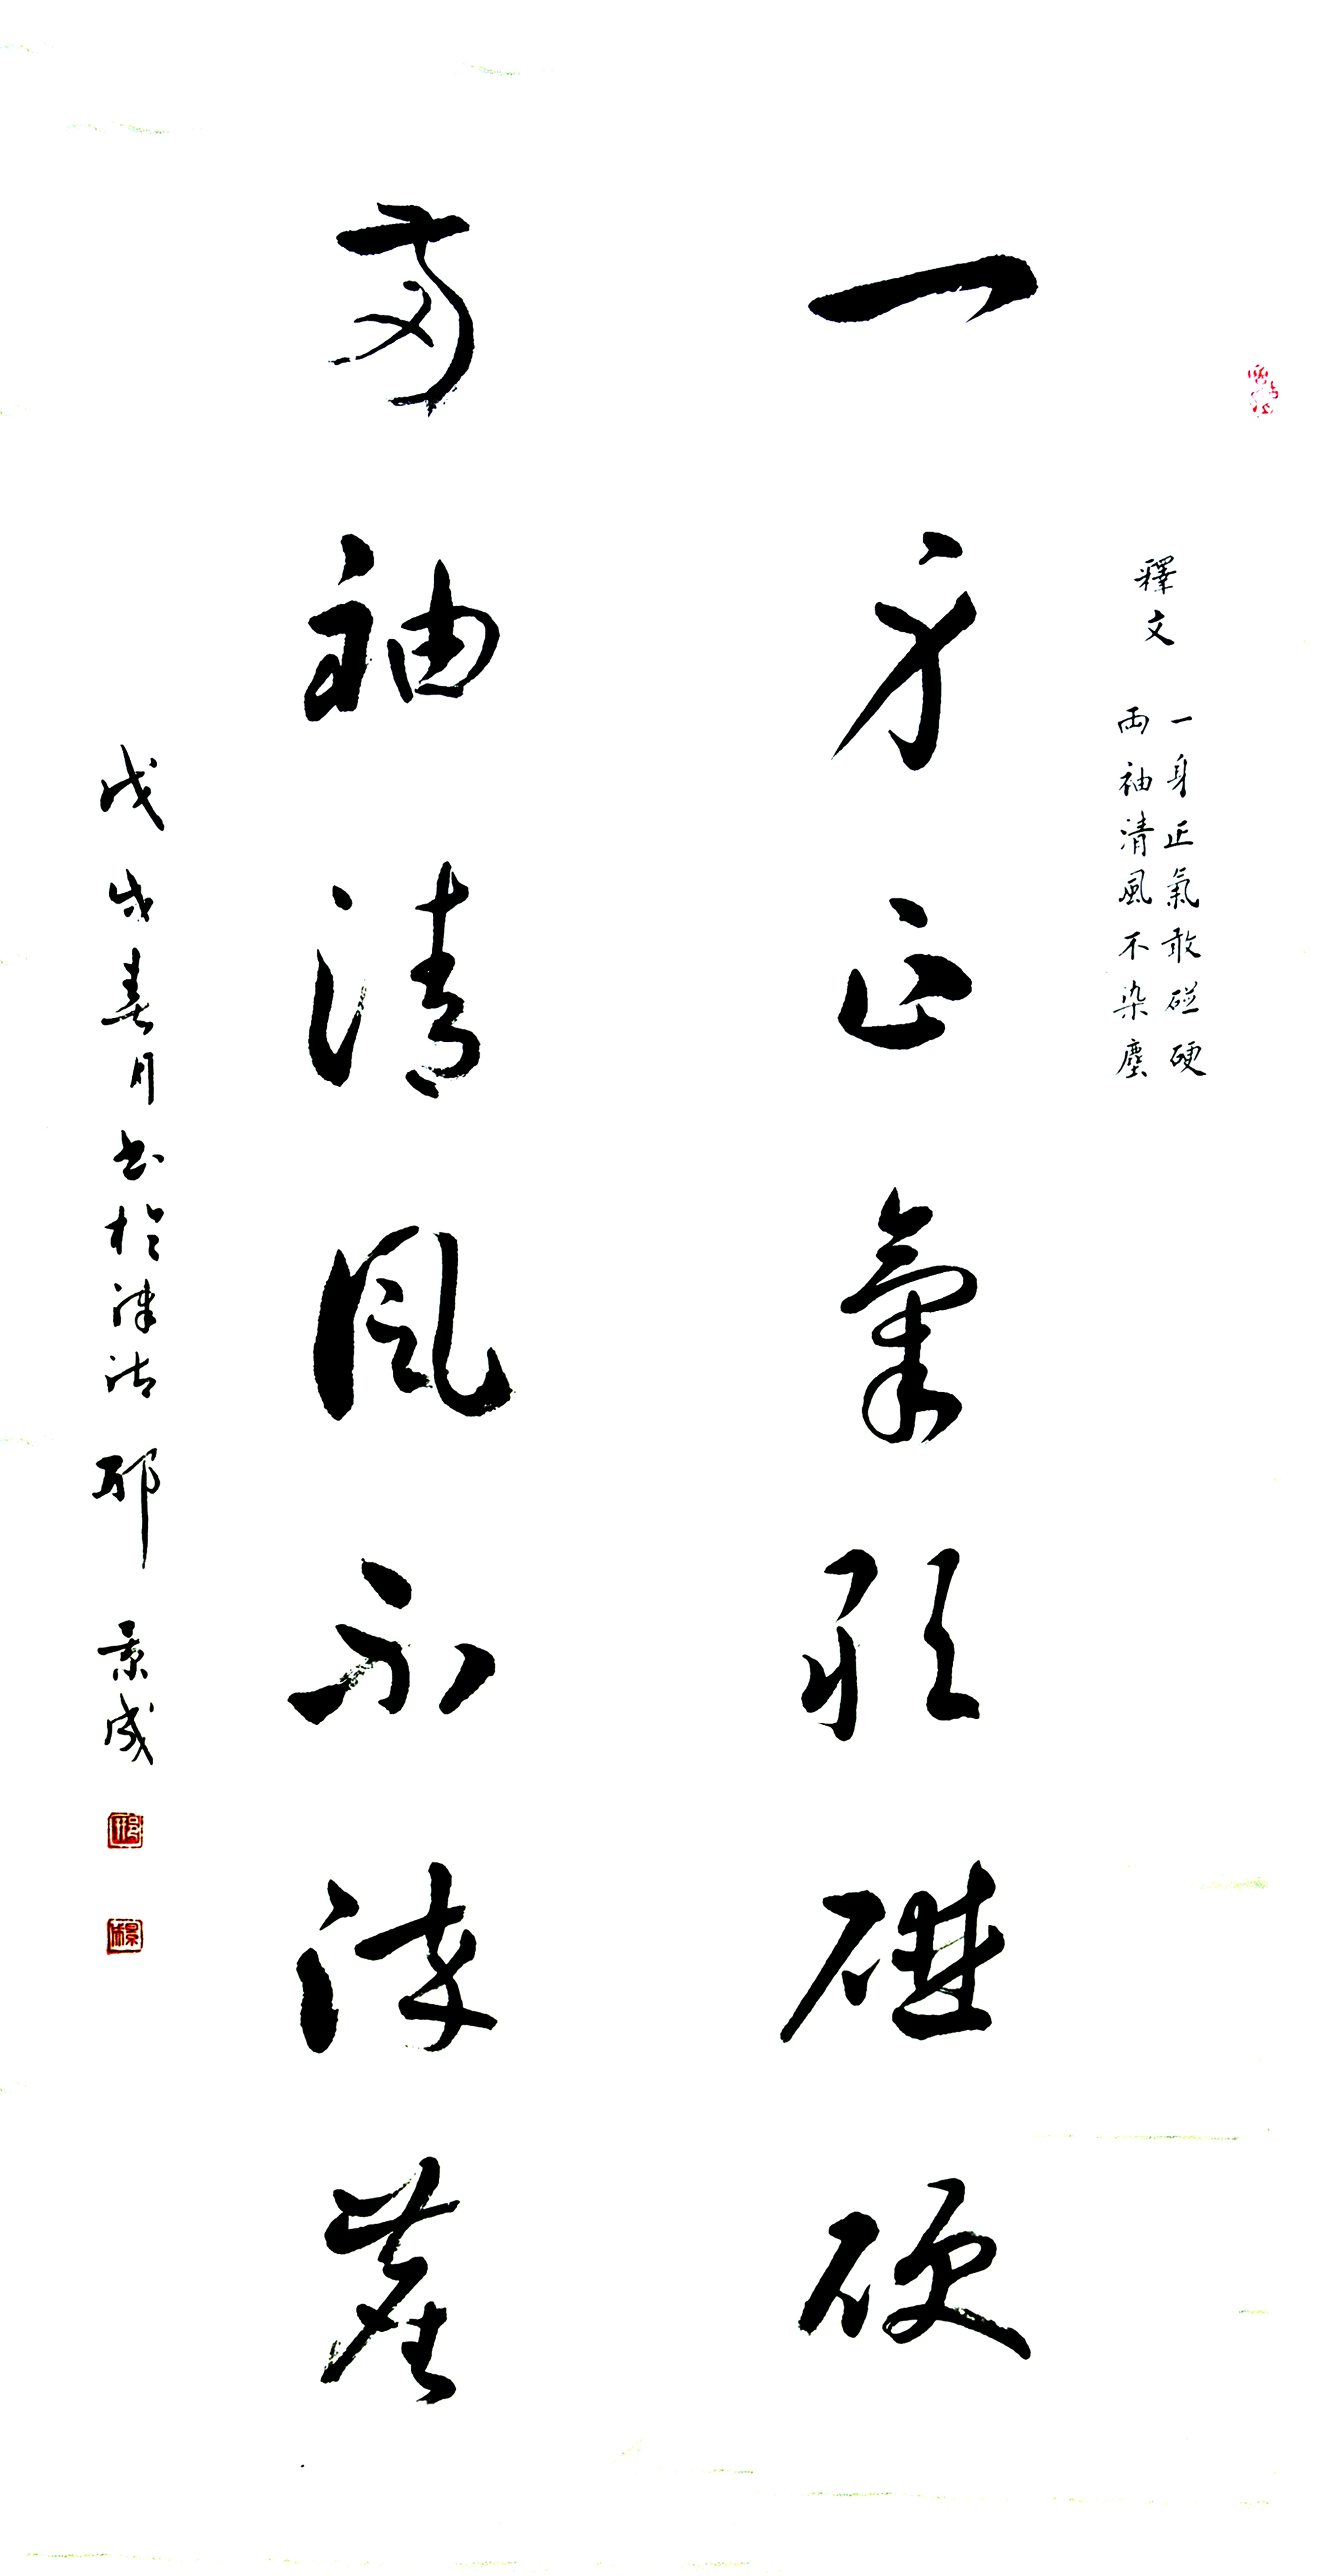 釋文
一身正氣敢碰硬
兩袖清風不染塵
一身正氣敢碰硬
兩袖清風不染塵
戊戌春月書於津沽邢景成
邢